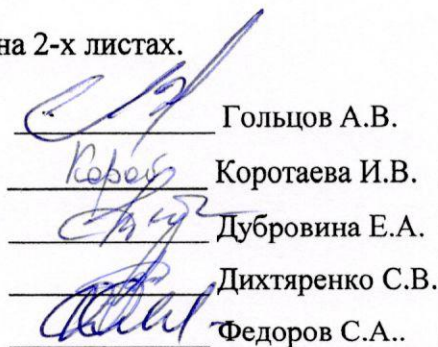 на 2-х листах.
Гольцов А.В.
Коротаева И.В.
Дубровина Е.А.
Дихтяренко С.В.
Федоров С.А..